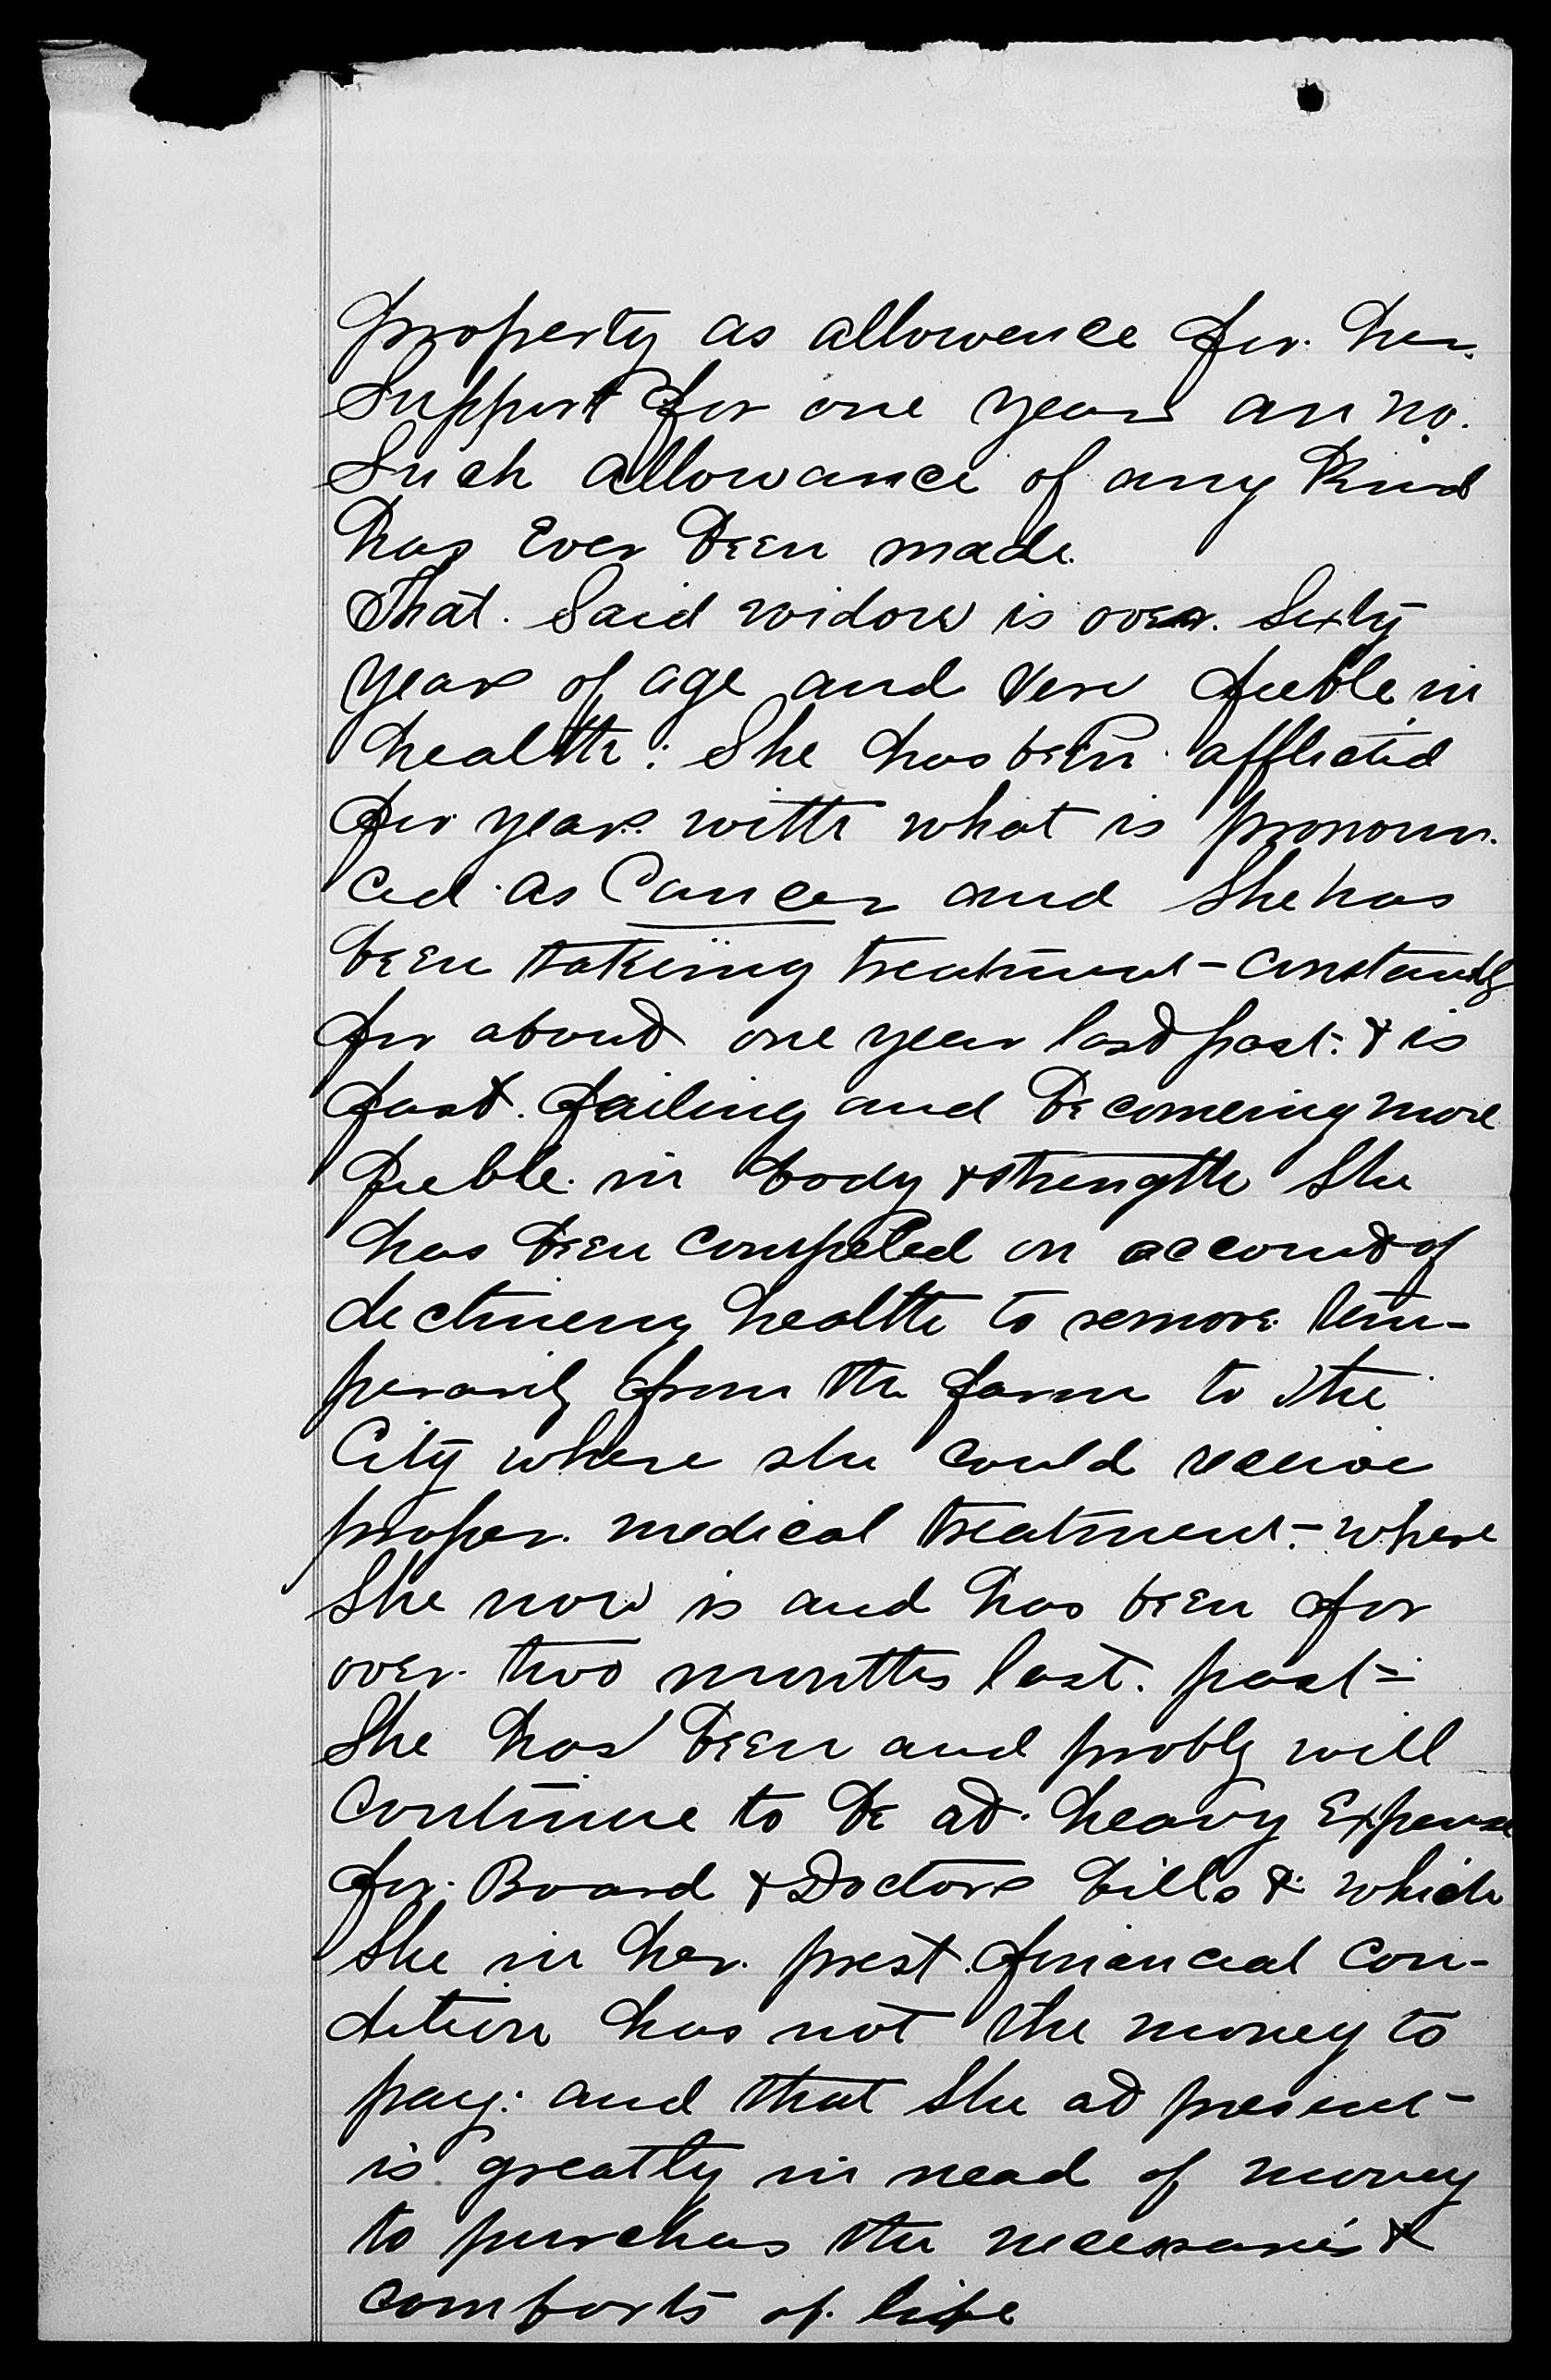 property as allowence for her
Support for one year an no.
Such allowance of any Kind
has Ever been made.
That. Said widow is over. Sixty
years of age and very feeble in
health: She has been afflicted
for years with what is pronoun-
ced as Cancer and She has
been takeing treatment - constantly
for about one year last past. & is
fast. failing and becomeing more
feeble in body & strength She
has been compeled on account of
declineing health to remove tem-
perarily from the farm to the
City where she could receive
proper. medical treatment - where
She now is and has been for
over two months last. past -
She has been and probly will
Continue to be at heavy Expense
for. Board & Doctors bills & which
She in her. prest. financial con-
dition has not the money to
pay. and that She at present -
is greatly in nead of money
to purchas the necessaries &
comforts of. life